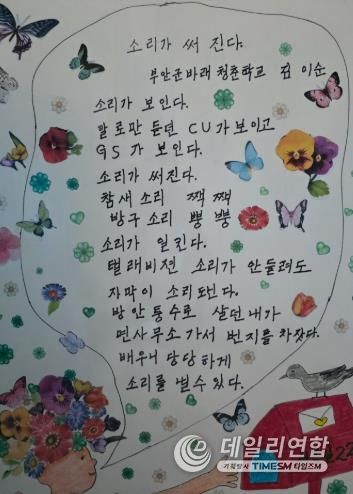 소리가 써 진다.
부안군바래 청춘학교 김 이순
소리가 보인다.
말로만 듣던 CU가 보이고
GS 가 보인다.
소리가 써진다.
참새 소리 짹 짹
방구 소리 뿡 뿡
소리가 일킨다.
탤래비젼 소리가 안들려도
자막이 소리 된다.
방안퉁수로 살던 내가
면사무소 가서 번지를 차잤다.
배우니 당당하게
소리를 낼수 있다.
데일리연합
기획탐사 TIMESM 타임즈M